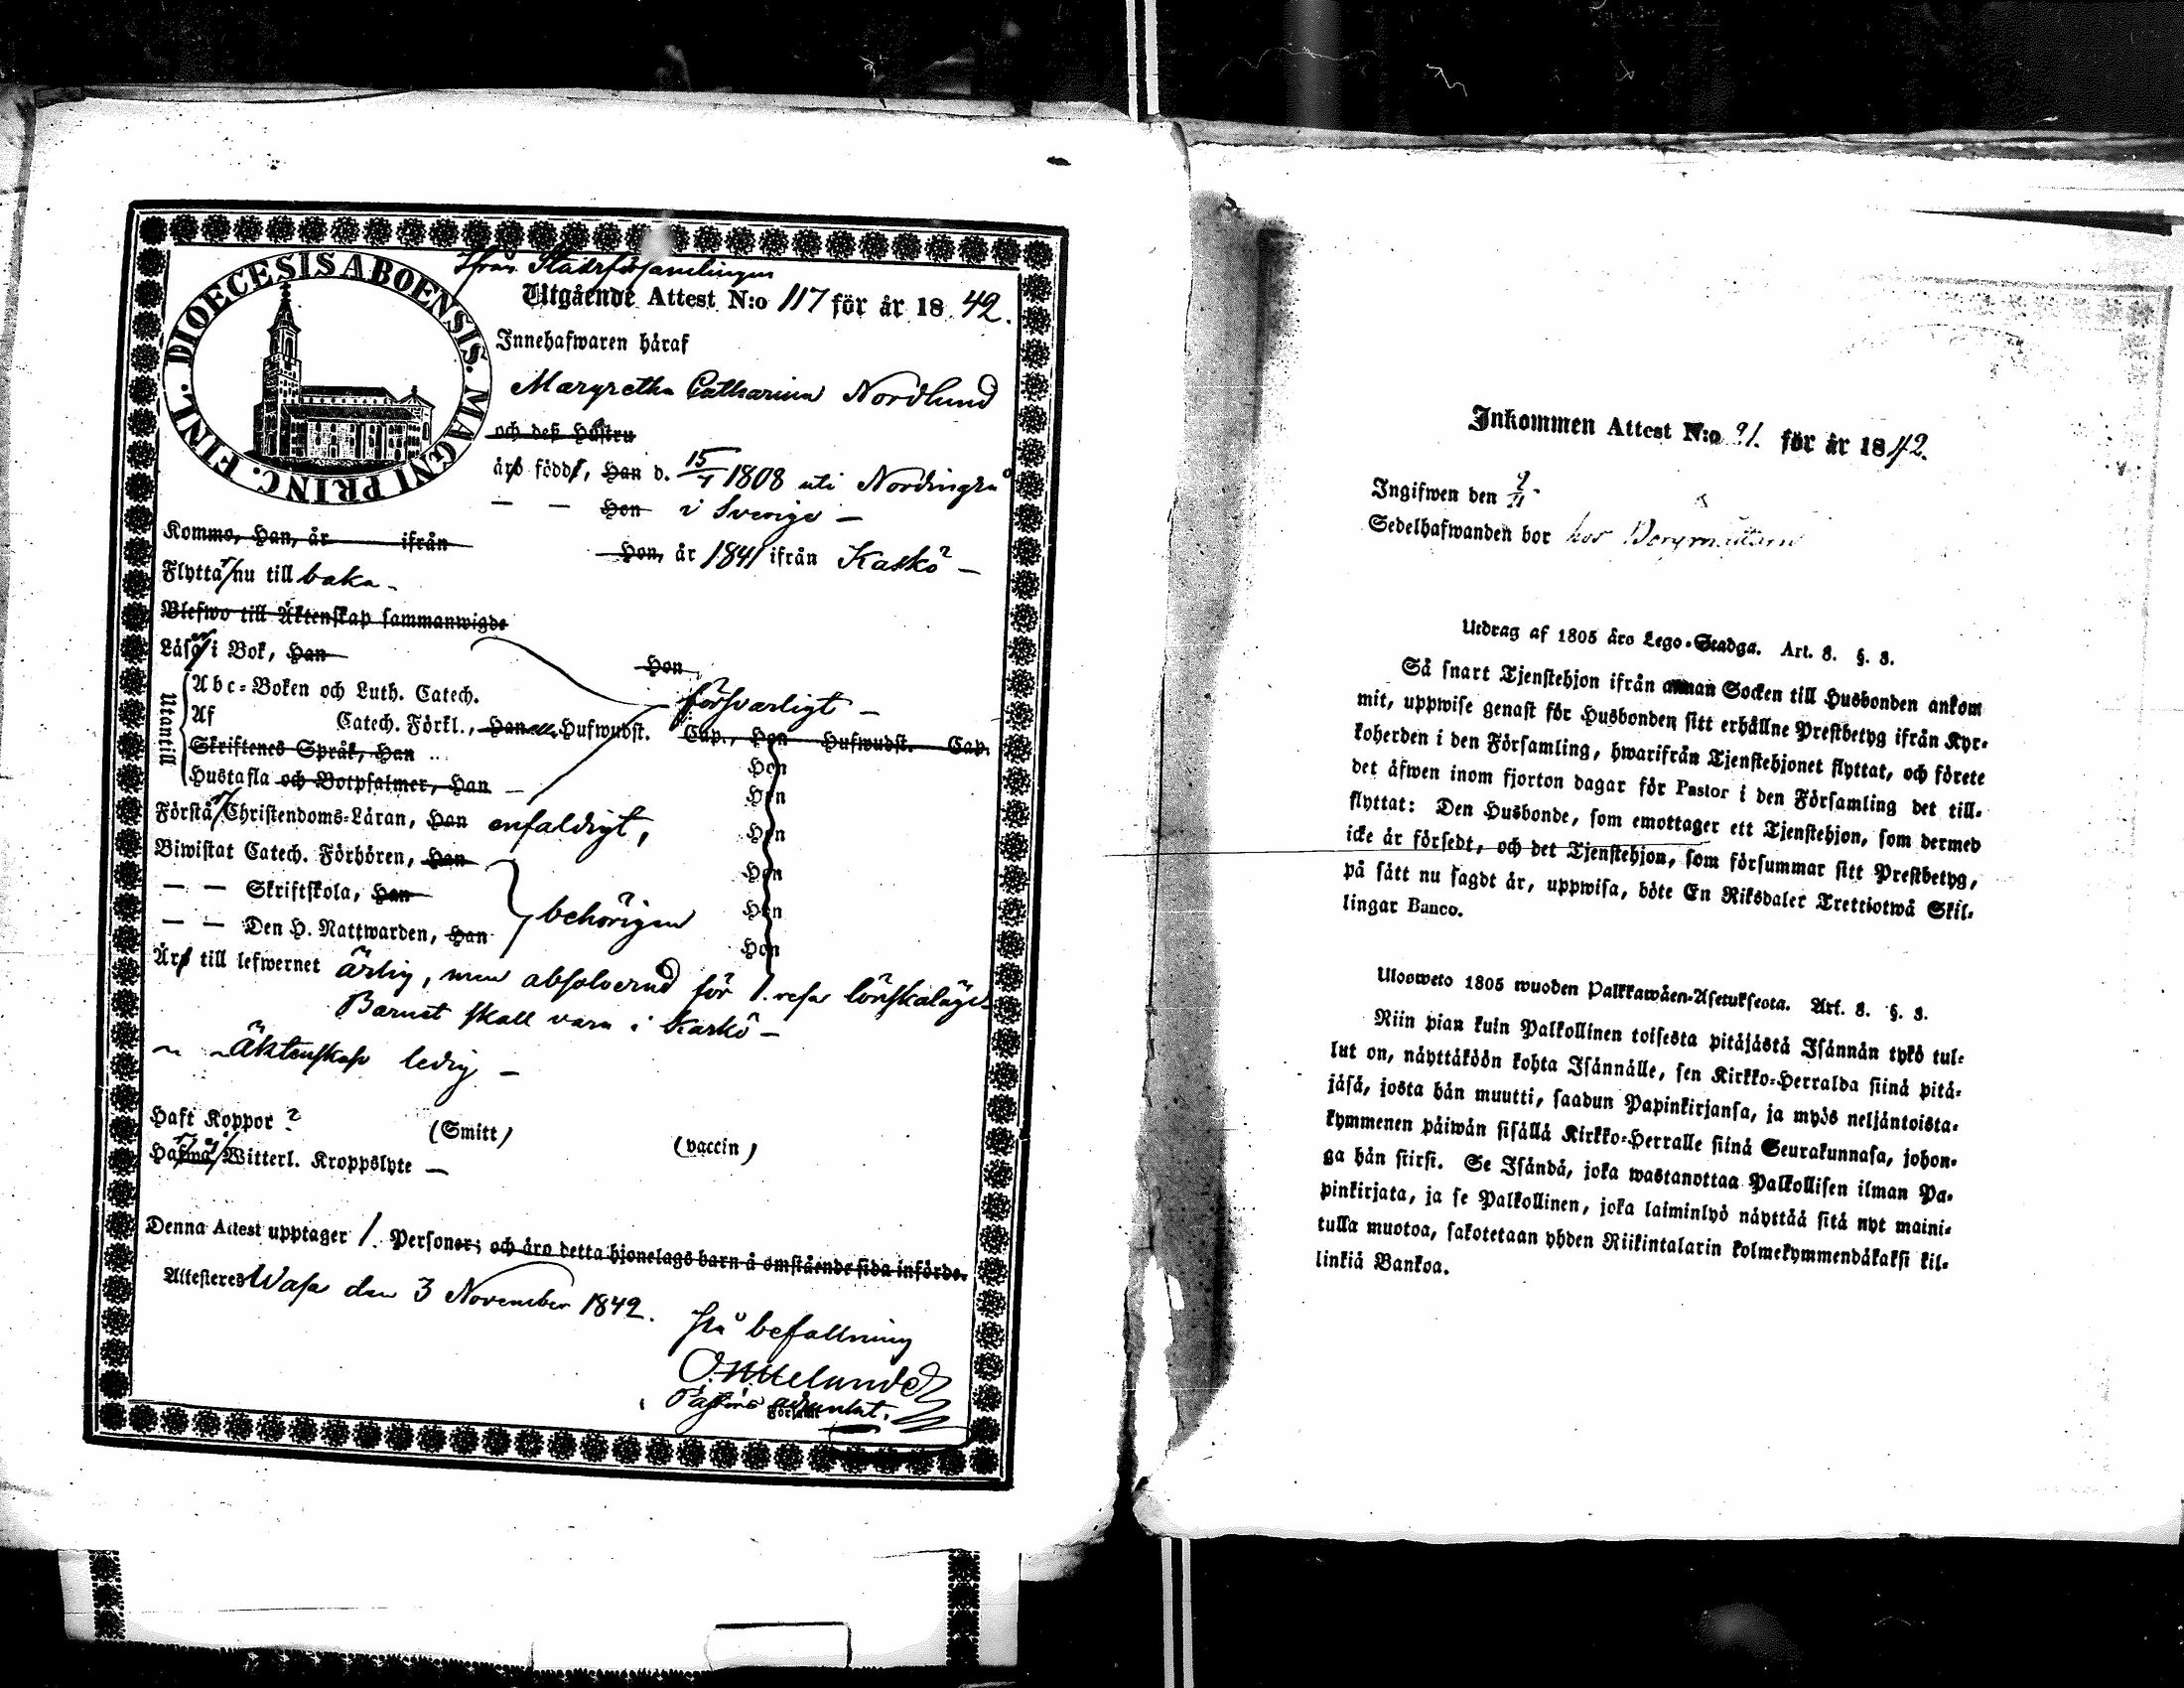 DIOECESIS ABOENSIS. MAGNI PRINC. FINL.
ifrån Stadsförsamlingen
Utgående Attest N:o 117 för år 1842.
Innehafwaren håraf
Margretha Catharina Nordlund
och deß Hustru
år född, Han d. 15/4 1808 uti Nordingrå
— — Hon i Sverige —
Kommo, Han, år ifrån
Hon, år 1841 ifrån Kaskö —
Flyttar nu till baka —
Blefwo till Äktenskap sammanwigde
Låser i Bok, Han
Hon
Utantill
Abc-Boken och Luth. Catech.
försvarligt —
Af Catech. Förkl., Han Hufwudst. Cap., Hon Hufwudst. Cap.
Skriftenes Språk, Han Hon
Hustafla och Botpsalmer, Han — Hon
Förstår Christendoms-Låran, Han enfaldigt, Hon
Biwistat Catech. Förhören, Han Hon
— — Skriftskola, Han Hon
behörigen
— — Den H. Nattwarden, Han Hon
Är till lefwernet ärlig, men absolverad för 1. resa lönskaläge
Barnet skall vara i Kaskö —
~ ~ Äktenskap ledig —
Haft Koppor ? (Smitt) (vaccin)
Har ej Witterl. Kroppslyte —
Denna Attest upptager 1. Personer; och åro detta hjonelags barn å omstående sida införde.
Attesteres Wasa den 3 November 1842.
På befallning
Pastors adjunkt.
Församl
Inkommen Attest N:o 21. för år 1842.
Ingifwen den 9/11
Sedelhafwanden bor hos
Utdrag af 1805 års Lego-Stadga. Art. 8. §. 3.
Så snart Tjenstehjon ifrån annan Socken till Husbonden ankom
mit, uppwise genast för Husbonden sitt erhållne Prestbetyg ifrån Kyr-
koherden i den Församling, hwarifrån Tjenstehjonet flyttat, och förete
det åfwen inom fjorton dagar för Pastor i den Församling det till-
flyttat: Den Husbonde, som emottager ett Tjenstehjon, som dermed
icke år försedt, och det Tjenstehjon, som försummar sitt Prestbetyg,
på sått nu sagdt år, uppwisa, böte En Riksdaler Trettiotwå Skil-
lingar Banco.
Ulosweto 1805 wuoden Palkkawåen-Asetuksesta. Art. 8. §. 3.
Niin pian kuin Palkollinen toisesta pitåjåstå Isånnån tykö tul-
lut on, nåyttåköön kohta Isånnålle, sen Kirkko-Herralda siinå pitå-
jåså, josta hån muutti, saadun Papinkirjansa, ja myös neljåntoista-
kymmenen påiwån sisållå Kirkko-Herralle siinå Seurakunnasa, johon-
ga hån siirsi. Se Isåndå, joka wastanottaa Palkollisen ilman Pa-
pinkirjata, ja se Palkollinen, joka laiminlyö nåyttåå sitå nyt maini-
tulla muotoa, sakotetaan yhden Riikintalarin kolmekymmendåkaksi kil-
linkiå Bankoa.